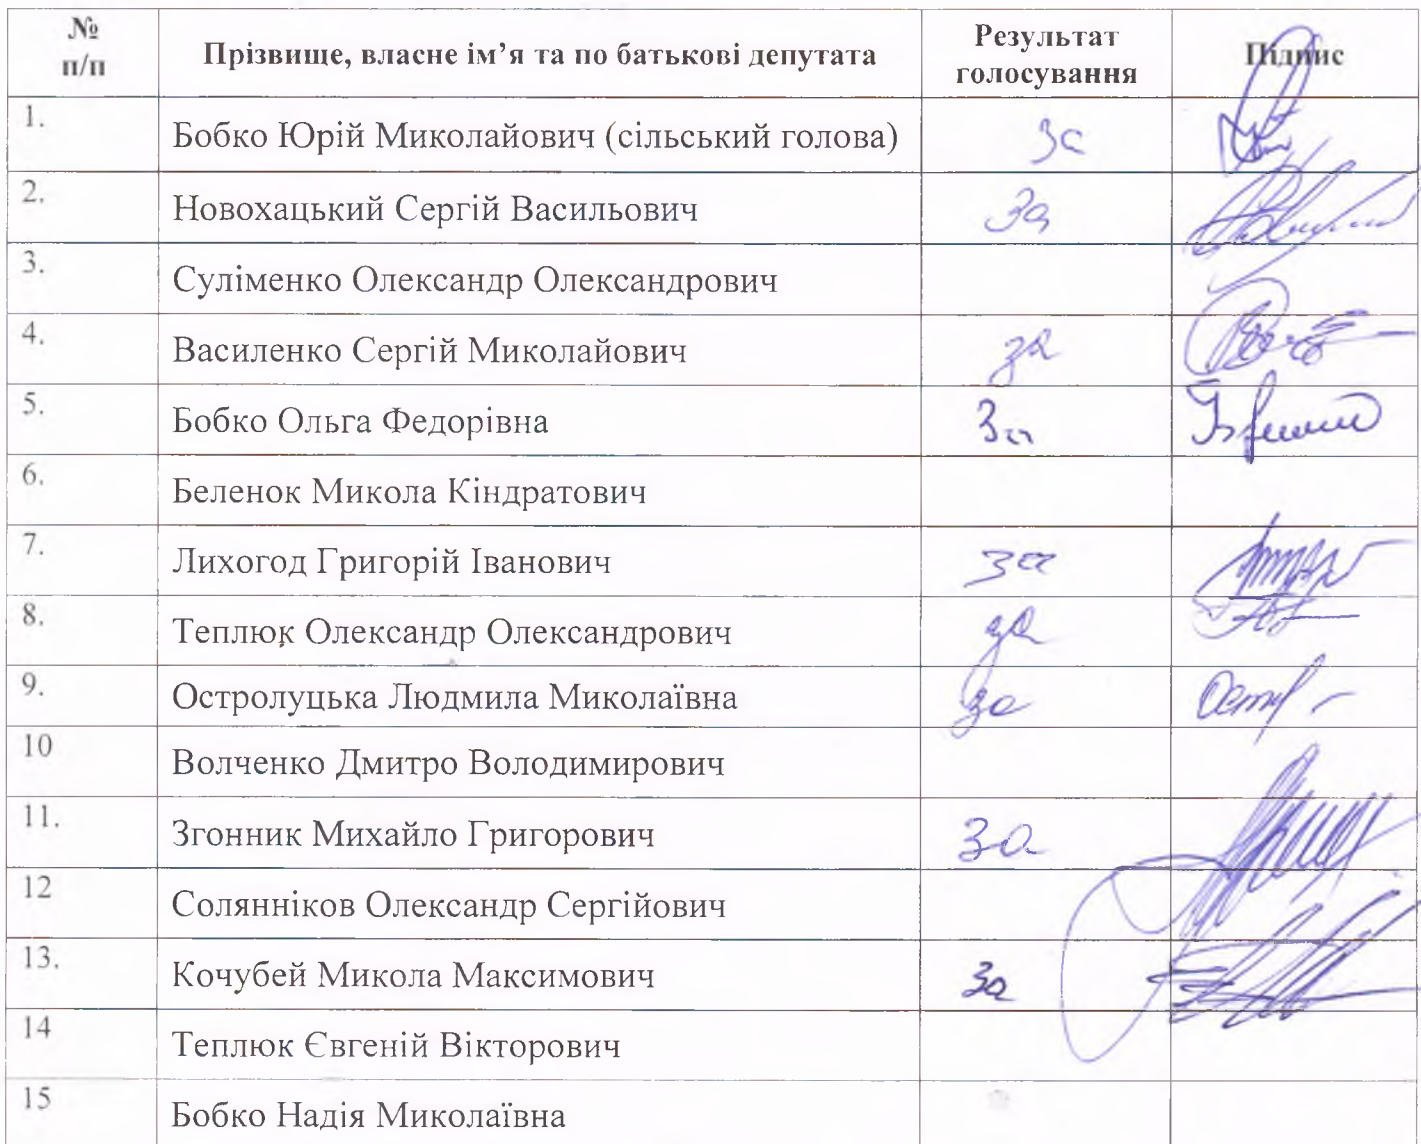 № п/п Прізвище, власне ім’я та по батькові депутата Результат голосування Підпис
1. Бобко Юрій Миколайович (сільський голова) за
2. Новохацький Сергій Васильович За
3. Суліменко Олександр Олександрович
4. Василенко Сергій Миколайович за
5. Бобко Ольга Федорівна За
6. Беленок Микола Кіндратович
7. Лихогод Григорій Іванович за
8. Теплюк Олександр Олександрович за
9. Остролуцька Людмила Миколаївна за
10 Волченко Дмитро Володимирович
11. Згонник Михайло Григорович За
12 Солянніков Олександр Сергійович
13. Кочубей Микола Максимович За
14 Теплюк Євгеній Вікторович
15 Бобко Надія Миколаївна